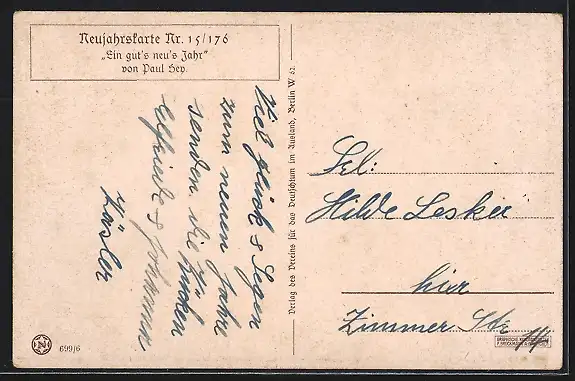 Neujahrskarte Nr. 15/176
„Ein gut's neu's Jahr"
von Paul Hey.
Viel glück & Segen
zum neuen Jahre
senden die
Elfriede & Johann
Verlag des Vereins für das Deutschtum im Ausland, Berlin W 62.
Frl:
Hilde Lesker
hier
Zimmer Str 14
699/6